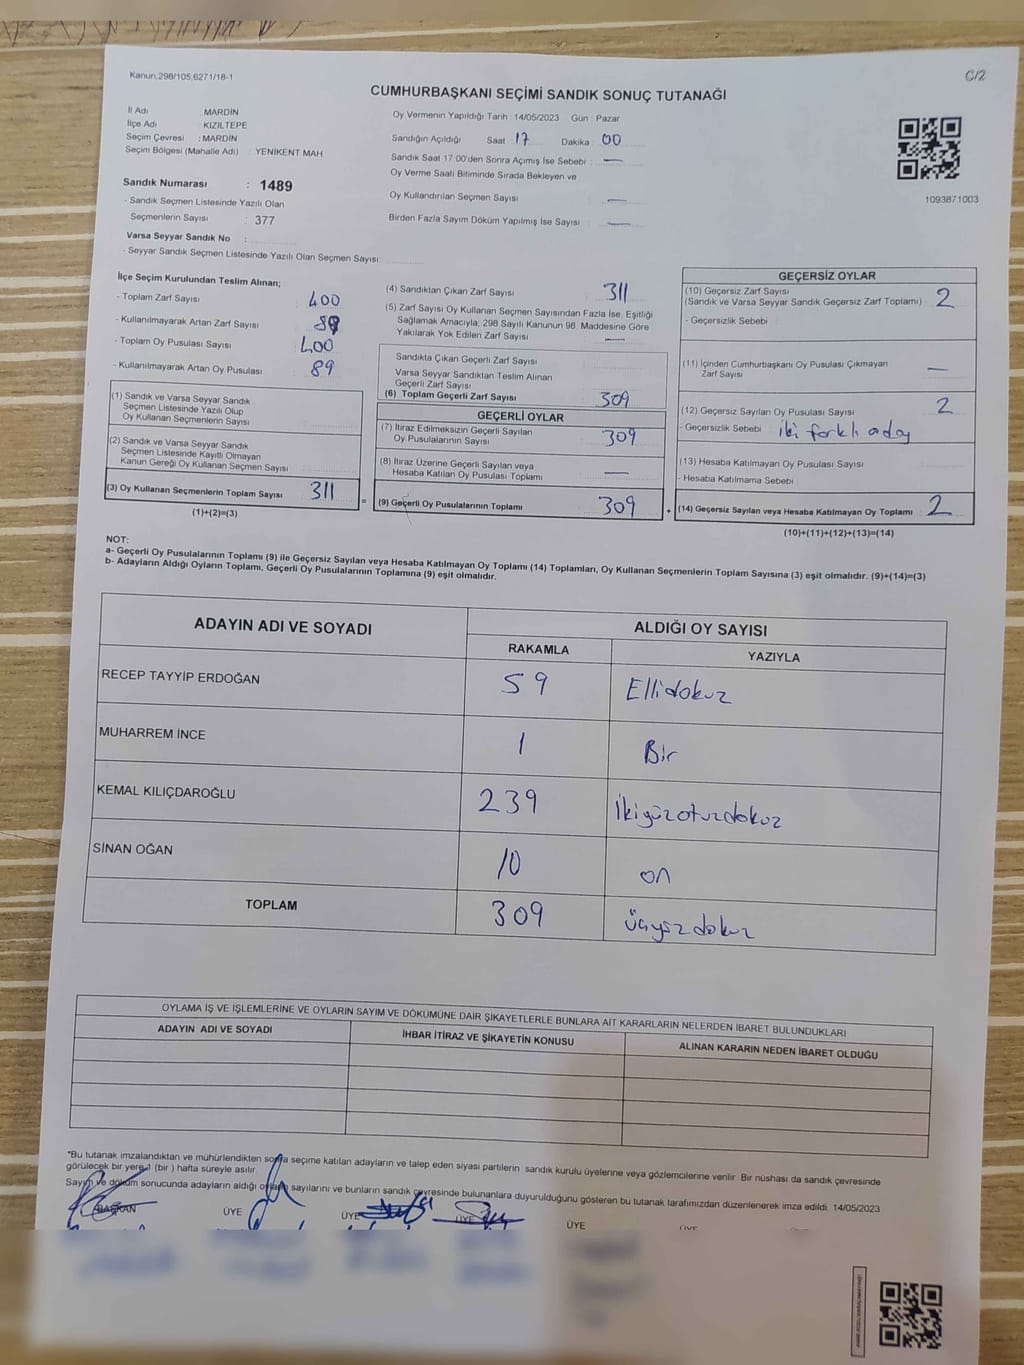 Kanun:298/105,6271/18-1
C/2
CUMHURBAŞKANI SEÇİMİ SANDIK SONUÇ TUTANAĞI
İl Adı : MARDİN
İlçe Adı : KIZILTEPE
Seçim Çevresi : MARDİN
Seçim Bölgesi (Mahalle Adı) : YENİKENT MAH
Sandık Numarası : 1489
- Sandık Seçmen Listesinde Yazılı Olan
Seçmenlerin Sayısı : 377
Varsa Seyyar Sandık No :
- Seyyar Sandık Seçmen Listesinde Yazılı Olan Seçmen Sayısı:
Oy Vermenin Yapıldığı Tarih : 14/05/2023 Gün : Pazar
Sandığın Açıldığı Saat 17 Dakika : 00
Sandık Saat 17:00'den Sonra Açımış İse Sebebi : —
Oy Verme Saati Bitiminde Sırada Bekleyen ve
Oy Kullandırılan Seçmen Sayısı —
Birden Fazla Sayım Döküm Yapılmış İse Sayısı —
1093871003
İlçe Seçim Kurulundan Teslim Alınan;
- Toplam Zarf Sayısı 400
- Kullanılmayarak Artan Zarf Sayısı 89
- Toplam Oy Pusulası Sayısı 400
- Kullanılmayarak Artan Oy Pusulası 89
(1) Sandık ve Varsa Seyyar Sandık
Seçmen Listesinde Yazılı Olup
Oy Kullanan Seçmenlerin Sayısı
(2) Sandık ve Varsa Seyyar Sandık
Seçmen Listesinde Kayıtlı Olmayan
Kanun Gereği Oy Kullanan Seçmen Sayısı
(3) Oy Kullanan Seçmenlerin Toplam Sayısı 311
(1)+(2)=(3)
=
(4) Sandıktan Çıkan Zarf Sayısı 311
(5) Zarf Sayısı Oy Kullanan Seçmen Sayısından Fazla İse, Eşitliği
Sağlamak Amacıyla, 298 Sayılı Kanunun 98. Maddesine Göre
Yakılarak Yok Edilen Zarf Sayısı —
Sandıkta Çıkan Geçerli Zarf Sayısı
Varsa Seyyar Sandıktan Teslim Alınan
Geçerli Zarf Sayısı
(6) Toplam Geçerli Zarf Sayısı 309
GEÇERLİ OYLAR
(7) İtiraz Edilmeksizin Geçerli Sayılan
Oy Pusulalarının Sayısı 309
(8) İtiraz Üzerine Geçerli Sayılan veya
Hesaba Katılan Oy Pusulası Toplamı —
(9) Geçerli Oy Pusulalarının Toplamı 309
+
GEÇERSİZ OYLAR
(10) Geçersiz Zarf Sayısı
(Sandık ve Varsa Seyyar Sandık Geçersiz Zarf Toplamı) 2
- Geçersizlik Sebebi
(11) İçinden Cumhurbaşkanı Oy Pusulası Çıkmayan
Zarf Sayısı —
(12) Geçersiz Sayılan Oy Pusulası Sayısı 2
- Geçersizlik Sebebi iki farklı aday
(13) Hesaba Katılmayan Oy Pusulası Sayısı
- Hesaba Katılmama Sebebi
(14) Geçersiz Sayılan veya Hesaba Katılmayan Oy Toplamı 2
(10)+(11)+(12)+(13)=(14)
NOT:
a- Geçerli Oy Pusulalarının Toplamı (9) ile Geçersiz Sayılan veya Hesaba Katılmayan Oy Toplamı (14) Toplamları, Oy Kullanan Seçmenlerin Toplam Sayısına (3) eşit olmalıdır. (9)+(14)=(3)
b- Adayların Aldığı Oyların Toplamı, Geçerli Oy Pusulalarının Toplamına (9) eşit olmalıdır.
ADAYIN ADI VE SOYADI ALDIĞI OY SAYISI
RAKAMLA YAZIYLA
RECEP TAYYİP ERDOĞAN 59 Ellidokuz
MUHARREM İNCE 1 Bir
KEMAL KILIÇDAROĞLU 239 İkiyüzotuzdokuz
SİNAN OĞAN 10 on
TOPLAM 309 üçyüzdokuz
OYLAMA İŞ VE İŞLEMLERİNE VE OYLARIN SAYIM VE DÖKÜMÜNE DAİR ŞİKAYETLERLE BUNLARA AİT KARARLARIN NELERDEN İBARET BULUNDUKLARI
ADAYIN ADI VE SOYADI İHBAR İTİRAZ VE ŞİKAYETİN KONUSU ALINAN KARARIN NEDEN İBARET OLDUĞU
*Bu tutanak imzalandıktan ve mühürlendikten sonra seçime katılan adayların ve talep eden siyasi partilerin sandık kurulu üyelerine veya gözlemcilerine verilir. Bir nüshası da sandık çevresinde
görülecek bir yere 1 (bir ) hafta süreyle asılır.
Sayım ve döküm sonucunda adayların aldığı oyların sayılarını ve bunların sandık çevresinde bulunanlara duyurulduğunu gösteren bu tutanak tarafımızdan düzenlenerek imza edildi. 14/05/2023
BAŞKAN ÜYE ÜYE ÜYE ÜYE ÜYE